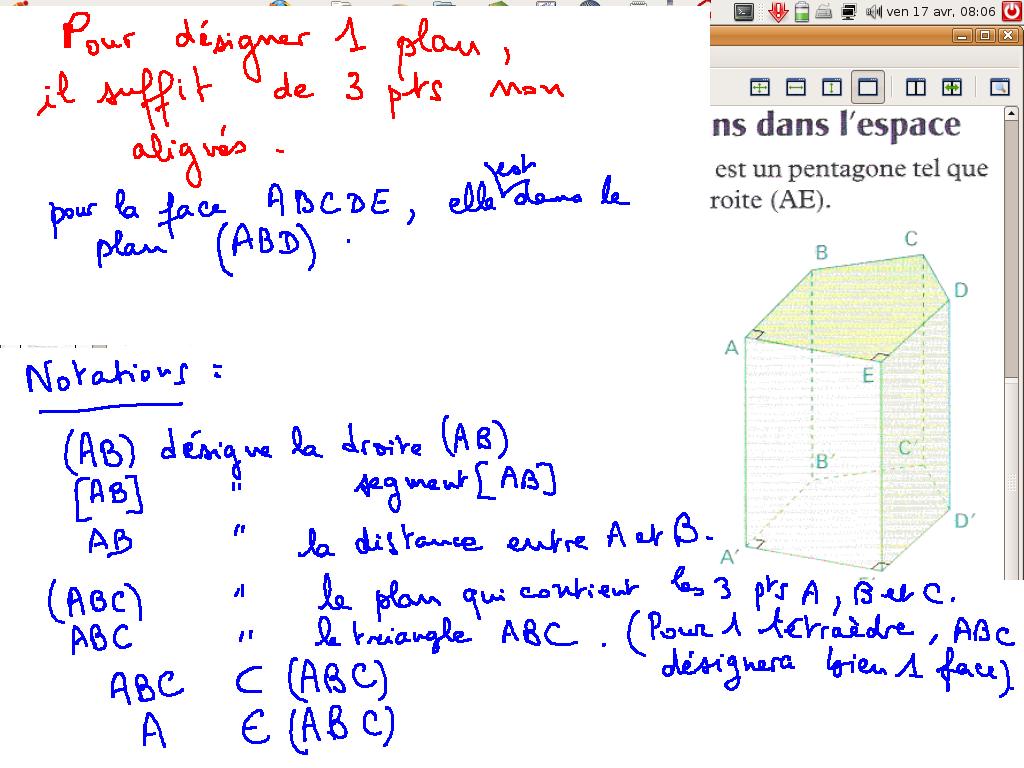 ven 17 avr, 08:06
Pour désigner 1 plan,
il suffit de 3 pts non
alignés.
pour la face ABCDE, elle est dans le
plan (ABD).
ns dans l'espace
est un pentagone tel que
roite (AE).
B
C
D
A
E
B'
C'
D'
A'
Notations :
(AB) désigne la droite (AB)
[AB] " segment [AB]
AB " la distance entre A et B.
(ABC) " le plan qui contient les 3 pts A, B et C.
ABC " le triangle ABC. (Pour 1 tétraèdre, ABC
désignera bien 1 face)
ABC ⊂ (ABC)
A ∈ (ABC)